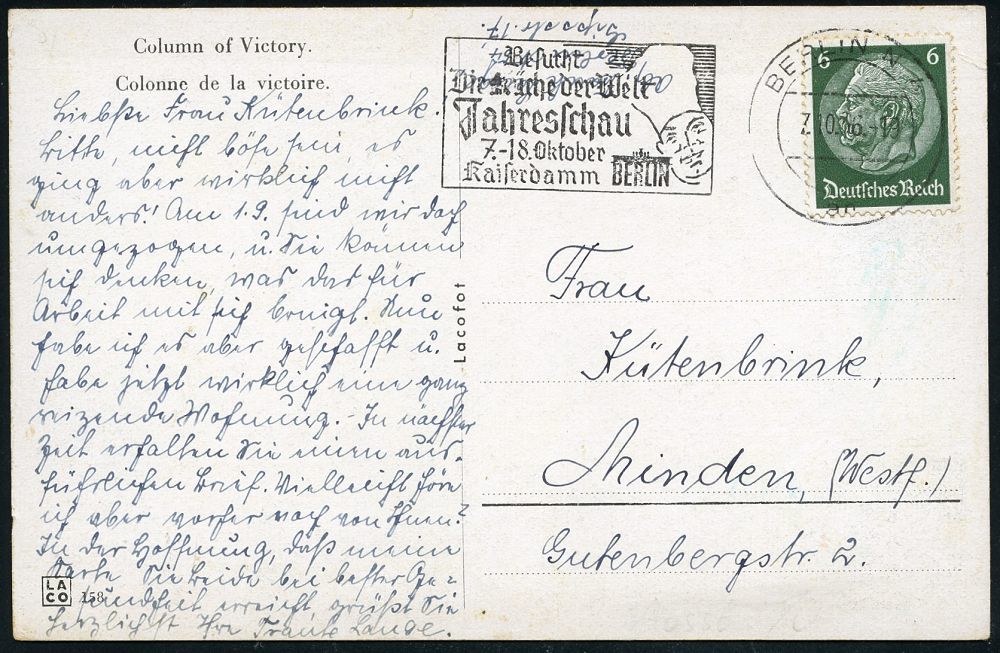 Column of Victory.
Colonne de la victoire.
Liebste Frau Kütenbrink.
Bitte, nicht böse sein, es
ging aber wirklich nicht
anders! Am 1.9. sind wir doch
umgezogen, u. Sie können
sich denken, was das für
Arbeit mit sich bringt. Nun
habe ich es aber geschafft u.
habe jetzt wirklich eine ganz
reizende Wohnung. - In nächster
Zeit erhalten Sie einen aus-
führlichen Brief. Vielleicht höre
ich aber vorher noch von Ihnen?
In der Hoffnung, daß meine
Karte Sie beide bei bester Ge=
sundheit erreicht, grüßt Sie
herzlichst Ihre Traute Lange.
LACO
158
Lacofot
Besucht
Die Küche der Welt
Jahresschau
7.-18. Oktober
Kaiserdamm BERLIN
BERLIN N
6 6
Deutsches Reich
Frau
Kütenbrink,
Minden, (Westf.)
Gutenbergstr. 2.